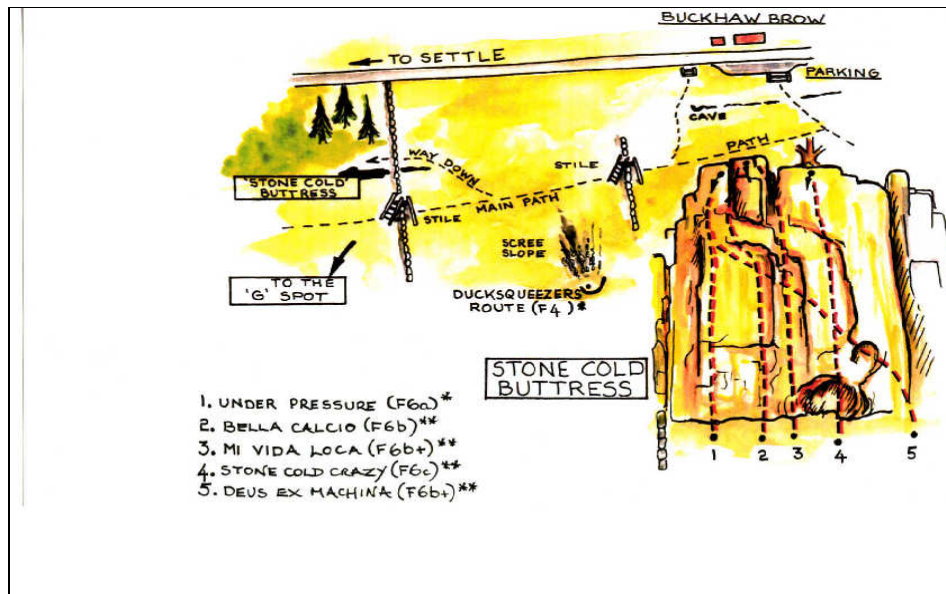 BUCKHAW BROW
TO SETTLE
PARKING
CAVE
PATH
WAY DOWN
STILE
'STONE COLD'
BUTTRESS
STILE
MAIN PATH
SCREE
SLOPE
TO THE
'G' SPOT
DUCKSQUEEZERS
ROUTE (F4)*
STONE COLD
BUTTRESS
1. UNDER PRESSURE (F6a)*
2. BELLA CALCIO (F6b)**
3. MI VIDA LOCA (F6b+)**
4. STONE COLD CRAZY (F6c)**
5. DEUS EX MACHINA (F6b+)**
1 2 3 4 5